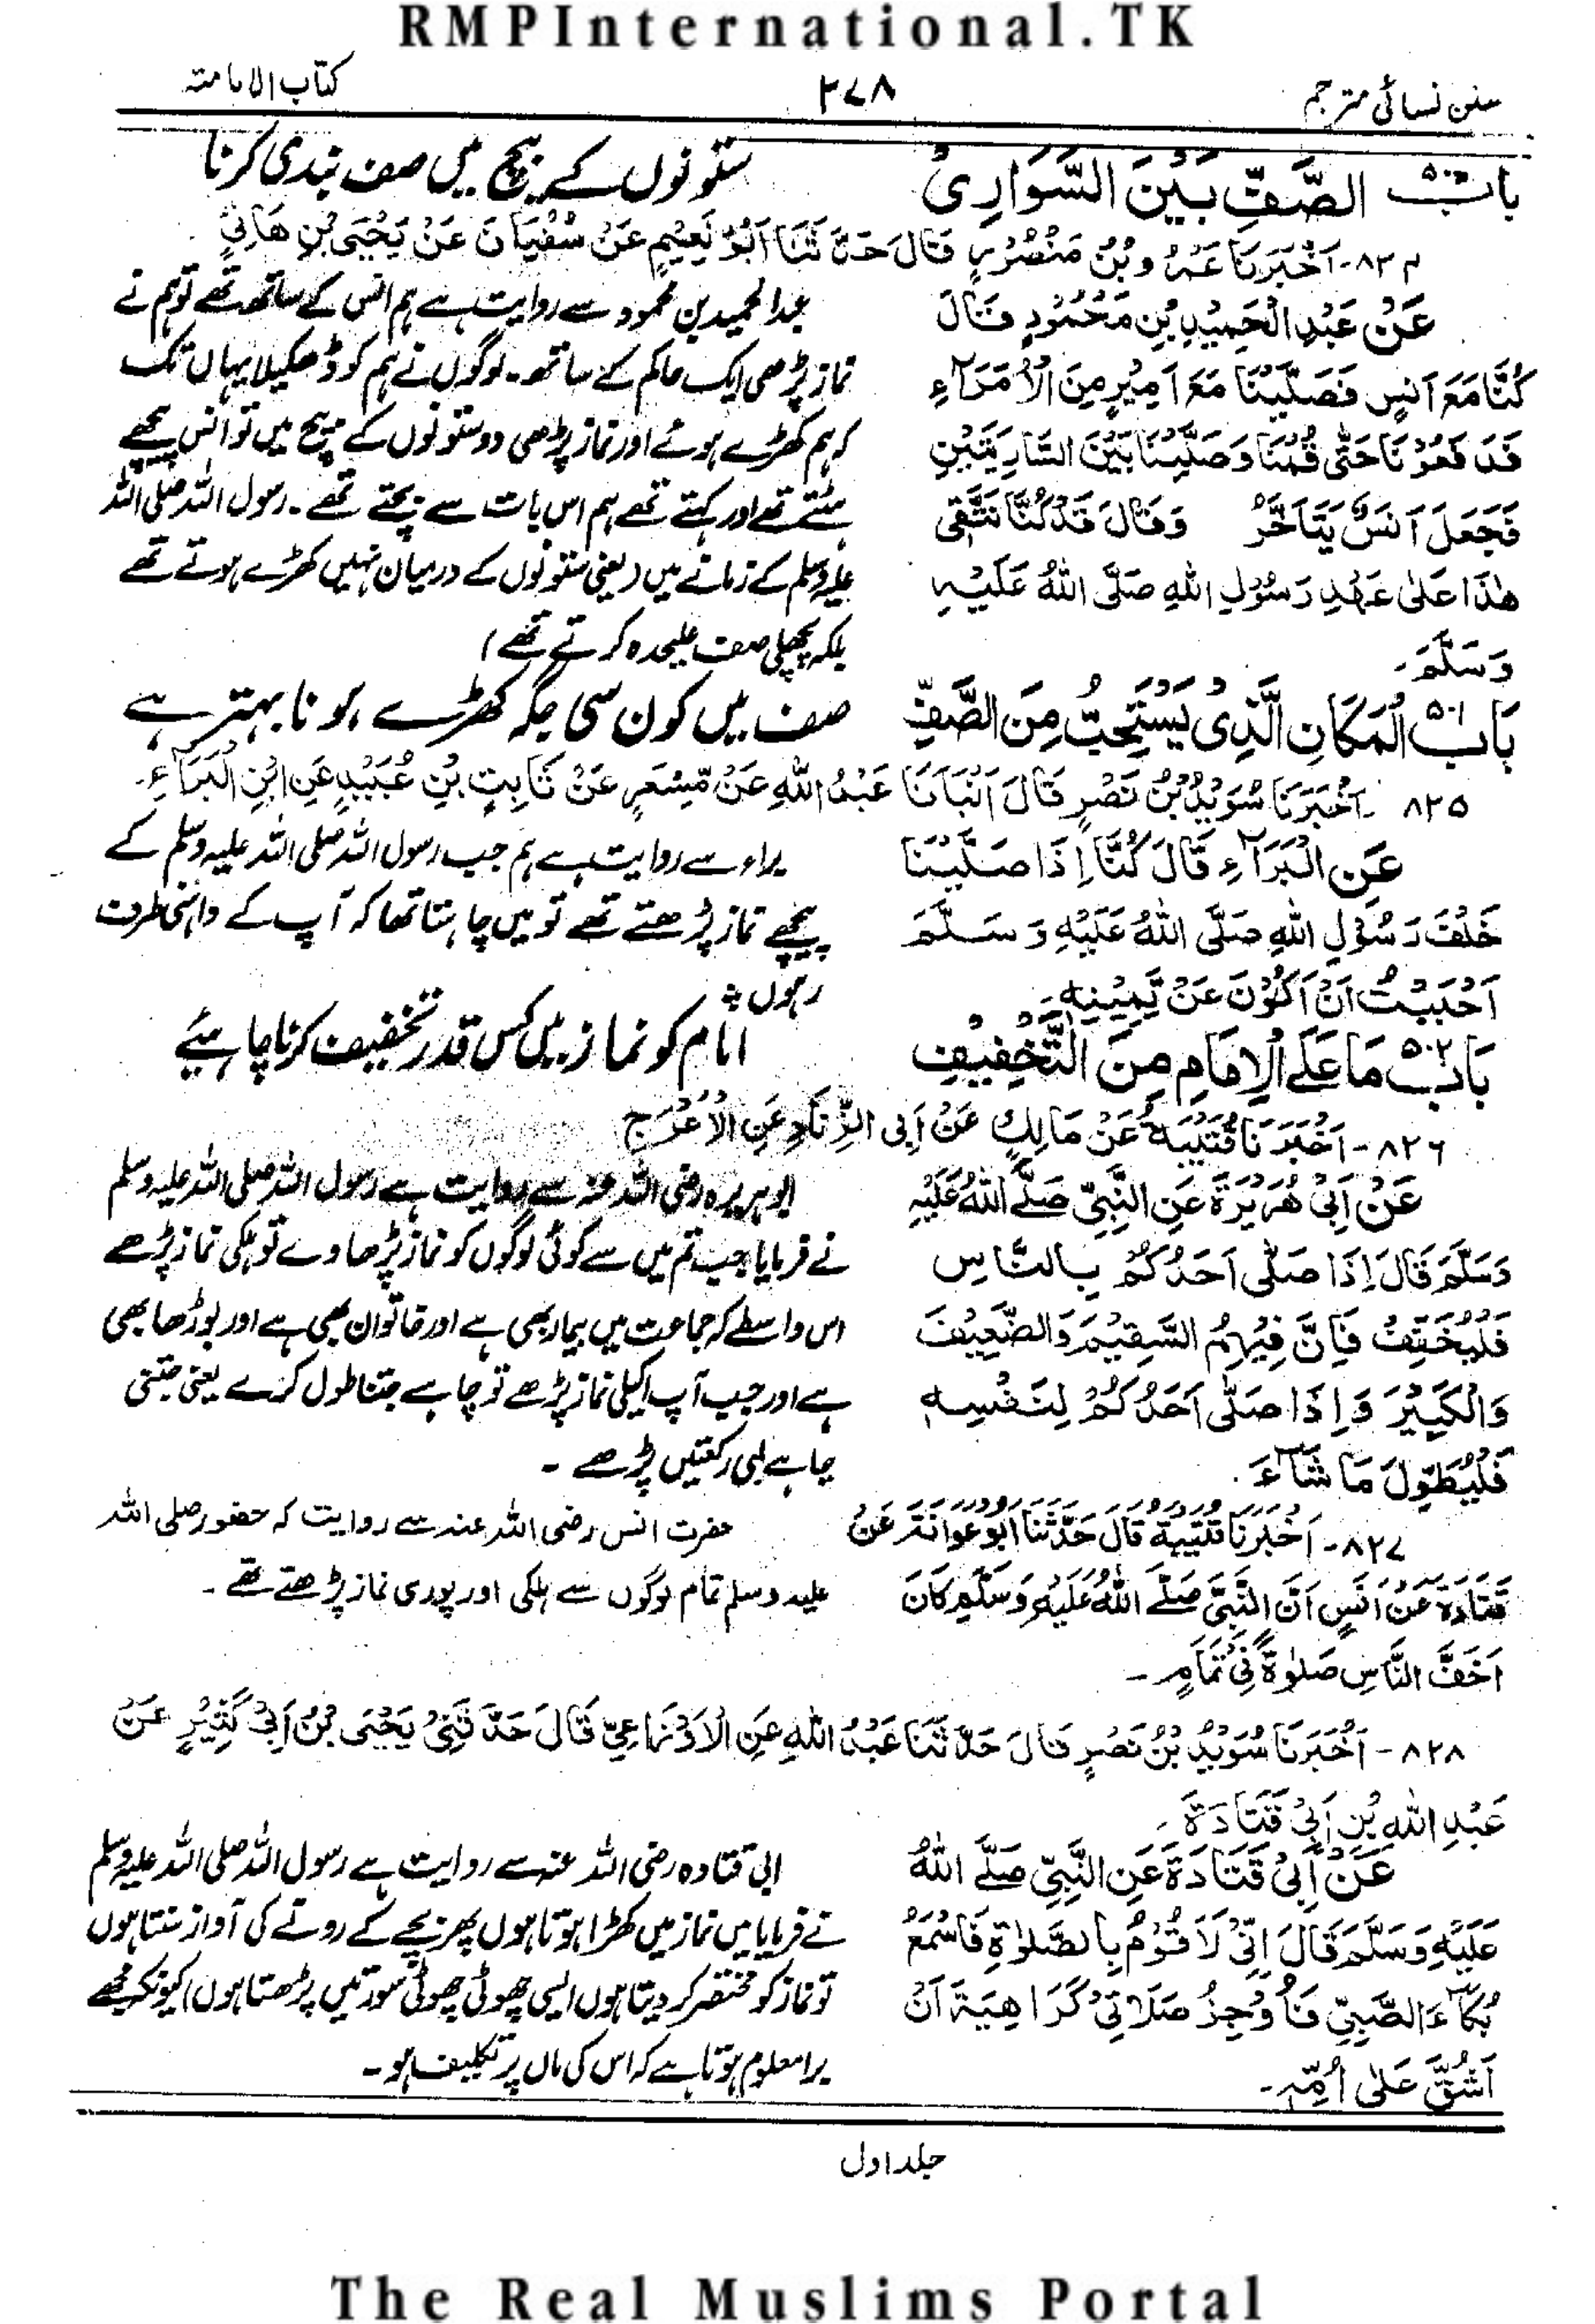 RMPInternational.TK
سنن نسائی مترجم
۲۷۸
کتاب الامامتہ
باب ۵۰۰ الصَّفِّ بَيْنَ السَّوَارِيْ
ستونوں کے بیچ میں صف بندی کرنا
۸۲۴- اَخْبَرَنَا عَمْرُو بْنُ مَنْصُوْرٍ قَالَ حَدَّثَنَا اَبُوْ نُعَيْمٍ عَنْ سُفْيَانَ عَنْ يَحْيَى بْنِ هَانِئٍ
عَنْ عَبْدِ الْحَمِيْدِ بْنِ مَحْمُوْدٍ قَالَ
كُنَّا مَعَ اَنَسٍ فَصَلَّيْنَا مَعَ اَمِيْرٍ مِنَ الْاُمَرَآءِ
فَدَفَعُوْنَا حَتّٰى قُمْنَا وَصَلَّيْنَا بَيْنَ السَّارِيَتَيْنِ
فَجَعَلَ اَنَسٌ يَتَاَخَّرُ وَقَالَ قَدْ كُنَّا نَتَّقِيْ
هٰذَا عَلٰى عَهْدِ رَسُوْلِ اللهِ صَلَّى اللهُ عَلَيْهِ
وَسَلَّمَ۔
عبدالحمید بن محمود سے روایت ہے ہم انس کے ساتھ تھے تو ہم نے
نماز پڑھی ایک حاکم کے ساتھ۔ لوگوں نے ہم کو ڈھکیلا یہاں تک
کہ ہم کھڑے ہوئے اور نماز پڑھی دو ستونوں کے بیچ میں تو انس پیچھے
ہٹتے تھے اور کہتے تھے ہم اس بات سے بچتے تھے۔ رسول اللہ صلی اللہ
علیہ وسلم کے زمانے میں (یعنی ستونوں کے درمیان نہیں کھڑے ہوتے تھے
بلکہ پچھلی صف علیحدہ کرتے تھے)
بَابُ ۵۰۱ الْمَكَانِ الَّذِيْ يُسْتَحَبُّ مِنَ الصَّفِّ
صف میں کون سی جگہ کھڑے ہونا بہتر ہے
۸۲۵ - اَخْبَرَنَا سُوَيْدُ بْنُ نَصْرٍ قَالَ اَنْبَاَنَا عَبْدُ اللهِ عَنْ مِّسْعَرٍ عَنْ ثَابِتِ بْنِ عُبَيْدٍ عَنِ ابْنِ الْبَرَآءِ۔
عَنِ الْبَرَآءِ قَالَ كُنَّا اِذَا صَلَّيْنَا
خَلْفَ رَسُوْلِ اللهِ صَلَّى اللهُ عَلَيْهِ وَسَلَّمَ
اَحْبَبْتُ اَنْ اَكُوْنَ عَنْ يَّمِيْنِهٖ۔
براء سے روایت ہے ہم جب رسول اللہ صلی اللہ علیہ وسلم کے
پیچھے نماز پڑھتے تھے تو میں چاہتا تھا کہ آپ کے داہنی طرف
رہوں
بَابُ ۵۰۲ مَا عَلَى الْاِمَامِ مِنَ التَّخْفِيْفِ
امام کو نماز میں کس قدر تخفیف کرنا چاہیئے
۸۲۶- اَخْبَرَنَا قُتَيْبَةُ عَنْ مَالِكٍ عَنْ اَبِى الزِّنَادِ عَنِ الْاَعْرَجِ
عَنْ اَبِيْ هُرَيْرَةَ عَنِ النَّبِيِّ صَلَّى اللهُ عَلَيْهِ
وَسَلَّمَ قَالَ اِذَا صَلّٰى اَحَدُكُمْ بِالنَّاسِ
فَلْيُخَفِّفْ فَاِنَّ فِيْهِمُ السَّقِيْمَ وَالضَّعِيْفَ
وَالْكَبِيْرَ وَاِذَا صَلّٰى اَحَدُكُمْ لِنَفْسِهٖ
فَلْيُطَوِّلْ مَا شَآءَ۔
ابو ہریرہ رضی اللہ عنہ سے روایت ہے رسول اللہ صلی اللہ علیہ وسلم
نے فرمایا جب تم میں سے کوئی لوگوں کو نماز پڑھاوے تو ہلکی نماز پڑھے
اس واسطے کہ جماعت میں بیمار بھی ہے اور ناتوان بھی ہے اور بوڑھا بھی
ہے اور جب آپ اکیلی نماز پڑھے تو چاہے جتنا طول کرے یعنی جتنی
چاہے لمبی رکعتیں پڑھے ۔
۸۲۷- اَخْبَرَنَا قُتَيْبَةُ قَالَ حَدَّثَنَا اَبُوْ عَوَانَةَ عَنْ
قَتَادَةَ عَنْ اَنَسٍ اَنَّ النَّبِيَّ صَلَّى اللهُ عَلَيْهِ وَسَلَّمَ كَانَ
اَخَفَّ النَّاسِ صَلٰوةً فِيْ تَمَامٍ۔
حضرت انس رضی اللہ عنہ سے روایت کہ حضور صلی اللہ
علیہ وسلم تمام لوگوں سے ہلکی اور پوری نماز پڑھتے تھے ۔
۸۲۸- اَخْبَرَنَا سُوَيْدُ بْنُ نَصْرٍ قَالَ حَدَّثَنَا عَبْدُ اللهِ عَنِ الْاَوْزَاعِيِّ قَالَ حَدَّثَنِيْ يَحْيَى بْنُ اَبِيْ كَثِيْرٍ عَنْ
عَبْدِ اللهِ بْنِ اَبِيْ قَتَادَةَ۔
عَنْ اَبِيْ قَتَادَةَ عَنِ النَّبِيِّ صَلَّى اللهُ
عَلَيْهِ وَسَلَّمَ قَالَ اِنِّيْ لَاَقُوْمُ بِالصَّلٰوةِ فَاَسْمَعُ
بُكَآءَ الصَّبِيِّ فَاُوْجِزُ صَلَاتِيْ كَرَاهِيَةَ اَنْ
اَشُقَّ عَلٰى اُمِّهٖ۔
ابی قتادہ رضی اللہ عنہ سے روایت ہے رسول اللہ صلی اللہ علیہ وسلم
نے فرمایا میں نماز میں کھڑا ہوتا ہوں پھر بچے کے رونے کی آواز سنتا ہوں
تو نماز کو مختصر کر دیتا ہوں (یسی چھوٹی چھوٹی سورتیں پڑھتا ہوں) کیونکہ مجھے
برا معلوم ہوتا ہے کہ اس کی ماں پر تکلیف ہو۔
جلد اول
The Real Muslims Portal